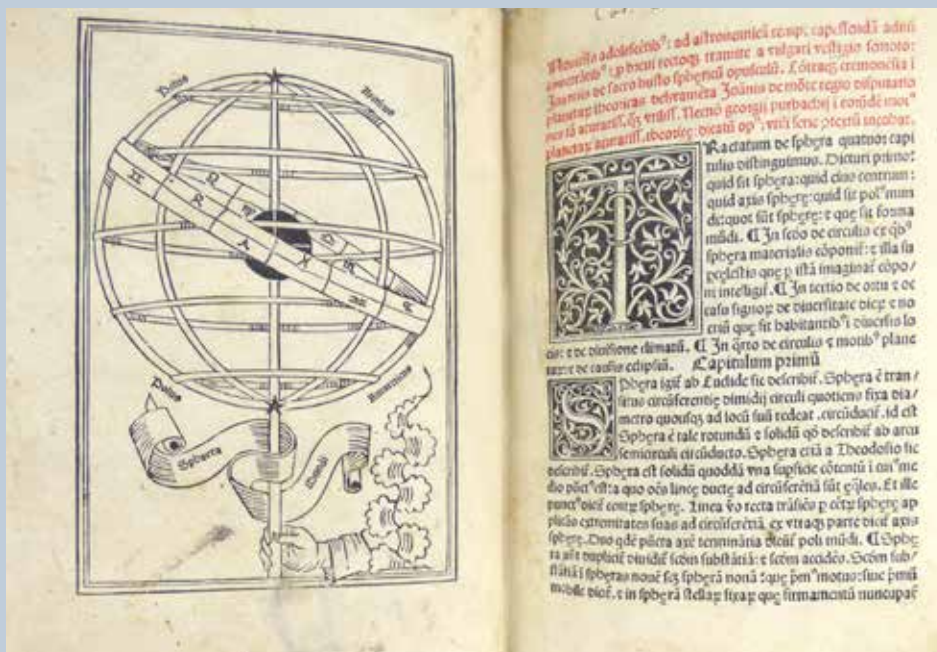 Polus
Arcticus
Polus
Antarcticus
Sphaera
Mūdi
Nouicijs adolescētib⁹: ad astronomicā remp. capessēdā aditū
impetrātib⁹: p breui rectoq3 tramite a vulgari vestigio semoto:
Joannis de sacro busto sphęricū opusculū. Cōtraq3 cremonēsia i
planetaꝝ theoricas delyramēta Joānis de mōte regio disputatio
tā accuratiss. q̄3 vtiliss. Necnō georgii purbachij i eorūdē mot⁹
planetaꝝ accuratiss. theoricę: dicatū op⁹: vtili serie ptextū incohat.
TRactatum de sphęra quatuor capi
tulis distinguimus. Dicturi primo:
quid sit sphęra: quid eius centrum:
quid axis sphęrę: quid sit pol⁹ mun
di: quot sūt sphęrę: ⁊ que sit forma
mūdi. ¶ In scḋo de circulis ex qb⁹
sphęra materialis cōponit̄: ⁊ illa su
pcęlestis que p istā imaginat̄ cōpo/
ni intelligit̄. ¶ In tertio de ortu ⁊ oc
casu signoꝝ: de diuersitate dieꝝ ⁊ no
ctiū: quę fit habitantib⁹ i diuersis lo
cis: ⁊ de diuisione climatū. ¶ In q̄rto de circulis ⁊ motib⁹ plane
taꝝ: ⁊ de causis eclipsiū. Capitulum primū
SPhęra igit̄ ab Euclide sic describit̄. Sphęra ē tran/
situs circūferentię dimidij circuli quotiens fixa dia/
metro quousq3 ad locū suū redeat .circūducit̄. id est
Sphęra ē tale rotundū ⁊ solidū qḋ describit̄ ab arcu
semicirculi circūducto. Sphęra etiā a Theodosio sic
describit̄. Sphęra est solidū quoddā vna supficie cōtentū i cui⁹ me
dio pūct⁹ est: a quo oēs lineę ductę ad circūferētiā sūt ęq̄les. Et ille
punct⁹ dicit̄ centꝝ sphęrę. Linea ꝟo recta trāsiēs p cētꝝ sphęrę ap
plicās extremitates suas ad circūferētiā. ex vtraq3 parte dicit̄ axis
sphęrę. Duo qdē pūcta axē terminātia dicūt̄ poli mūdi. ¶ Sphę
ra aūt dupliciť diuidit̄ scḋm substātiā: ⁊ scḋm accidēs. Scḋm sub/
stātiā i sphęras nouē scꝫ sphęrā nonā: que pm⁹ motus: siue pmū
mobile dicit̄. ⁊ in sphęrā stellaꝝ fixaꝝ que firmamentū nuncupat̄